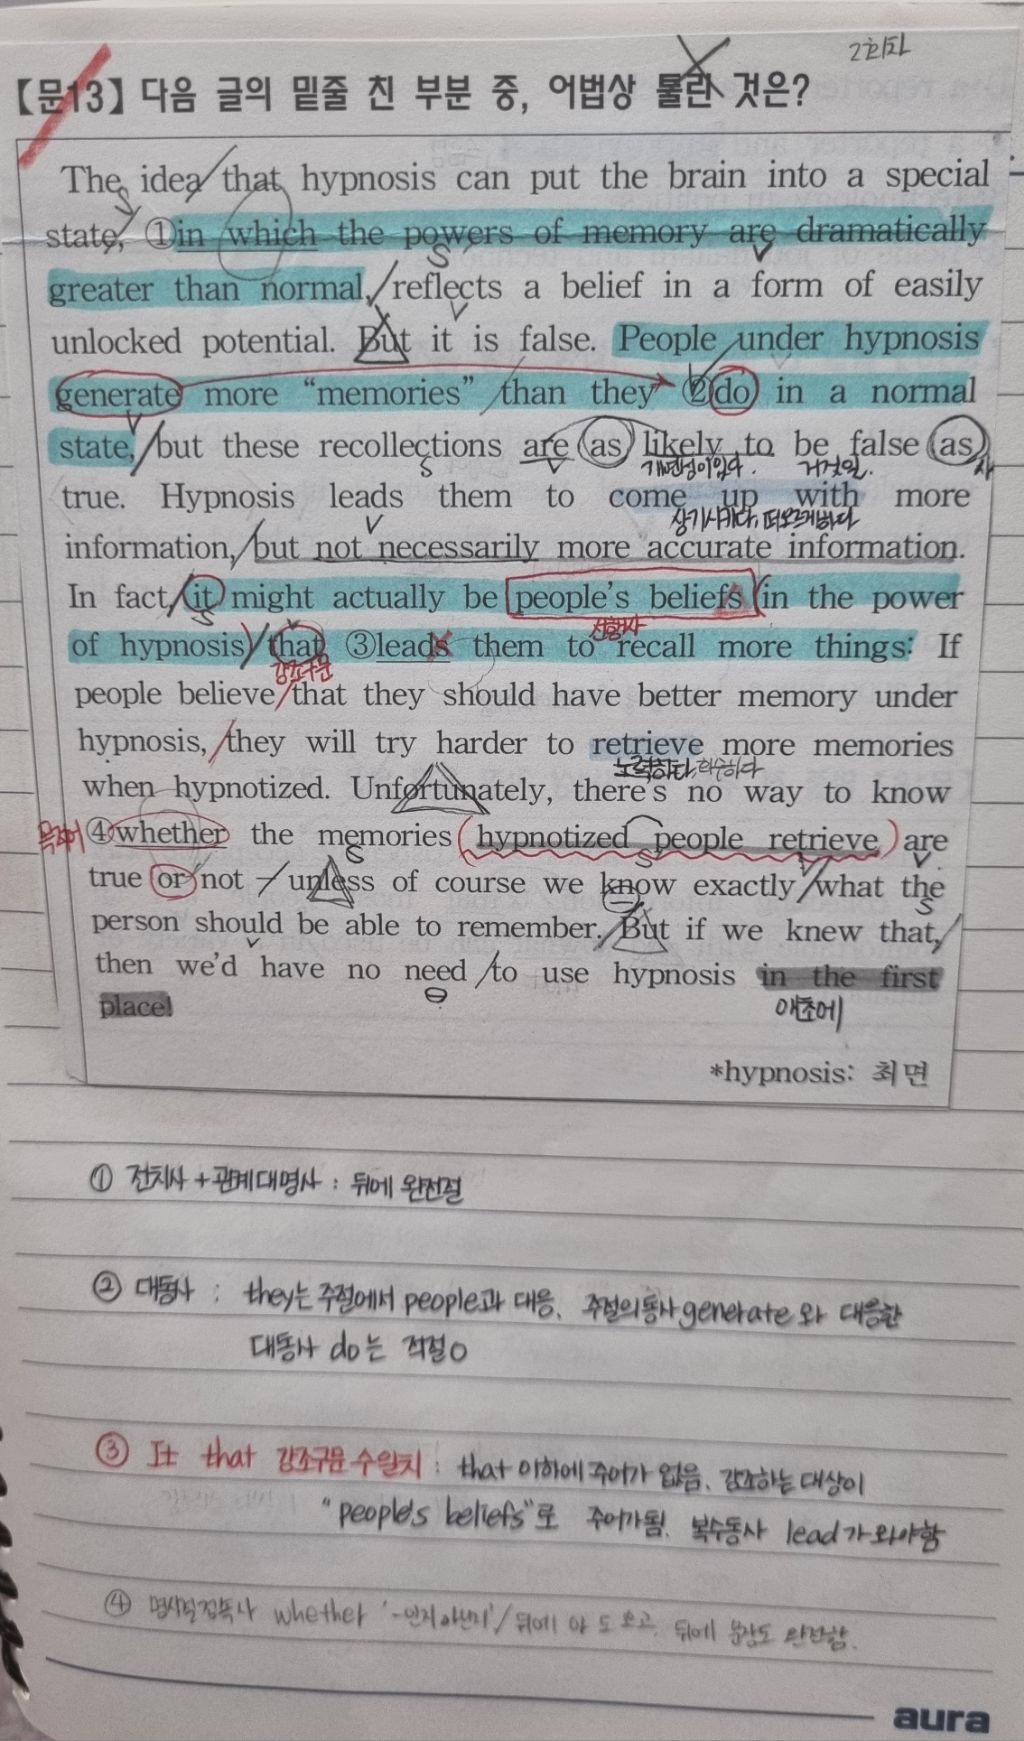 2회차
【문13】 다음 글의 밑줄 친 부분 중, 어법상 틀린 것은?
The idea that hypnosis can put the brain into a special
S
state, ①in which the powers of memory are dramatically
S V
greater than normal, reflects a belief in a form of easily
V
unlocked potential. But it is false. People under hypnosis
generate more “memories” than they ②do in a normal
V
state, but these recollections are as likely to be false as
S V 개연성이있다. 거짓일.
true. Hypnosis leads them to come up with more
V 상기시키다, 떠오르게하다
information, but not necessarily more accurate information.
In fact, it might actually be people’s beliefs in the power
S 선행사
of hypnosis that ③leads them to recall more things: If
강조구문
people believe that they should have better memory under
hypnosis, they will try harder to retrieve more memories
when hypnotized. Unfortunately, there’s no way to know
목적어 ④whether the memories hypnotized people retrieve are
S S V V
true or not – unless of course we know exactly what the
S
person should be able to remember. But if we knew that,
V
then we’d have no need to use hypnosis in the first
place!
애초에
*hypnosis: 최면
① 전치사 + 관계대명사 : 뒤에 완전절
② 대동사 : they는 주절에서 people과 대응. 주절의동사 generate 와 대응한
대동사 do는 적절O
③ It that 강조구문 수일치 : that 이하에 주어가 없음. 강조하는 대상이
"people's beliefs"로 주어가됨. 복수동사 lead가 와야함
④ 명사절접속사 whether '-인지 아닌지' / 뒤에 도 오고, 뒤에 문장도 완전함.
aura